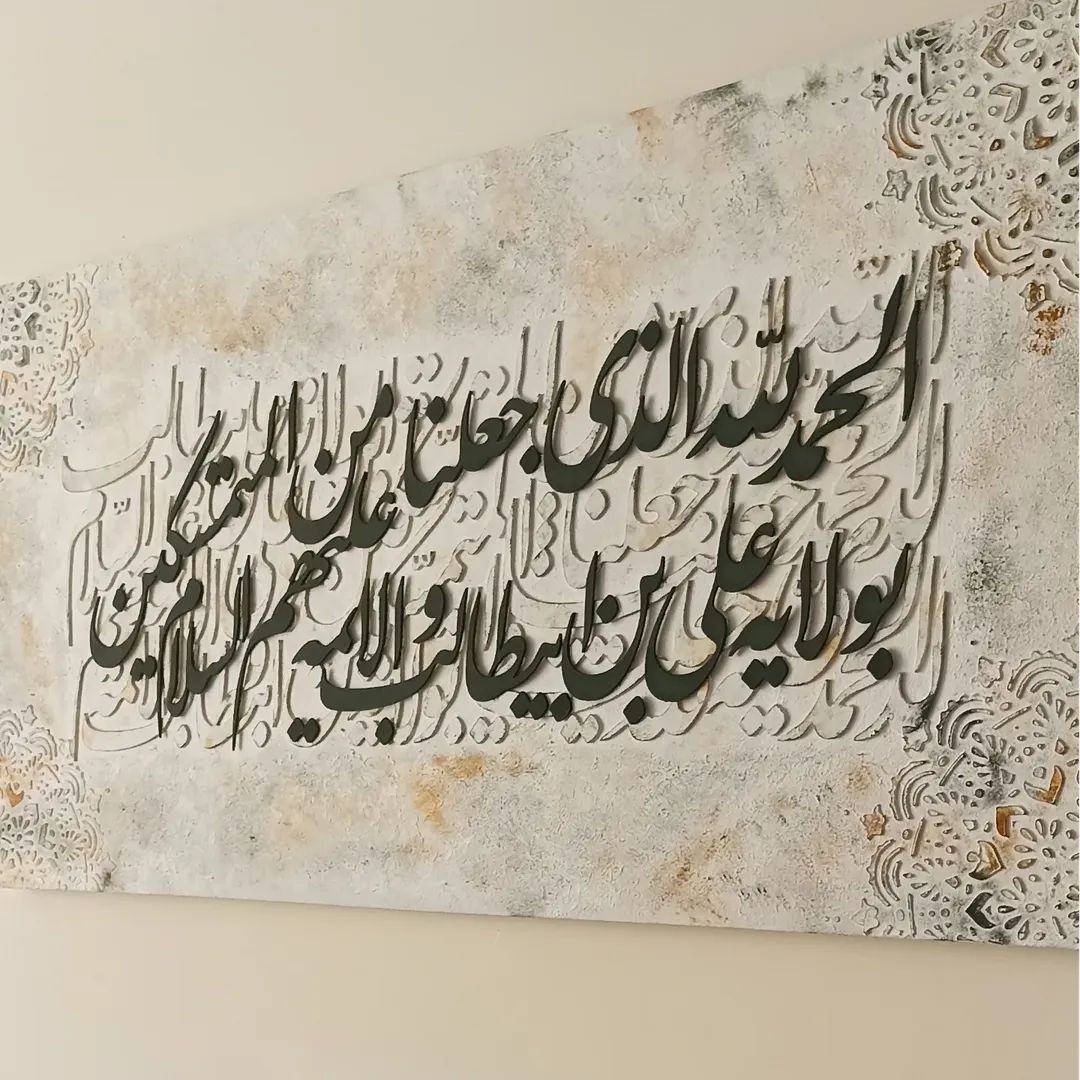 الحمد لله الذی جعلنا من المتمسکین
بولایه علی بن ابیطالب و الائمه علیهم السلام